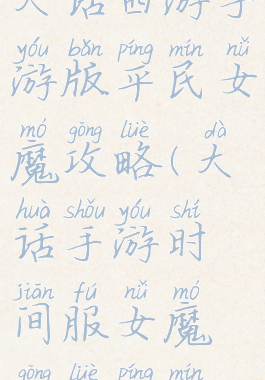 大话西游手
yóu bǎn píng mín nǚ
游版平民女
mó gōng lüè dà
魔攻略(大
huà shǒu yóu shí
话手游时
jiān fú nǚ mó
间服女魔
gōng lüè píng mín